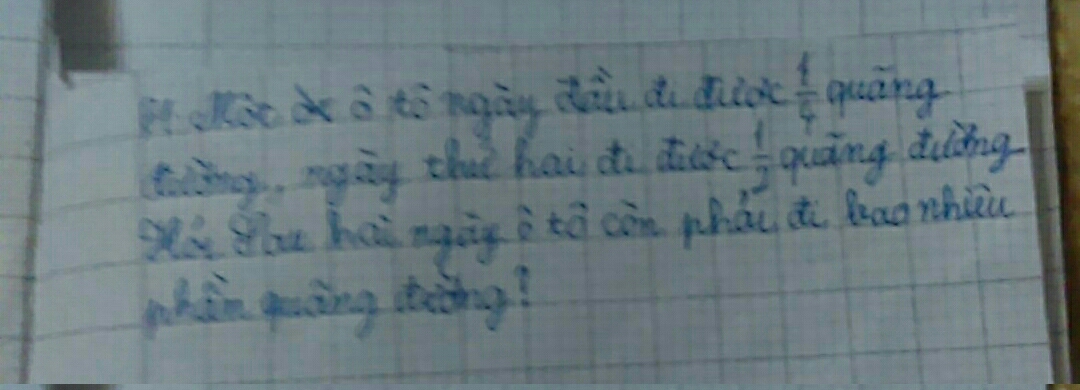 Một ô tô ngày đầu đi được 1/4 quãng
đường, ngày thứ hai đi được 1/2 quãng đường
Hỏi sau hai ngày ô tô còn phải đi bao nhiêu
phần quãng đường?